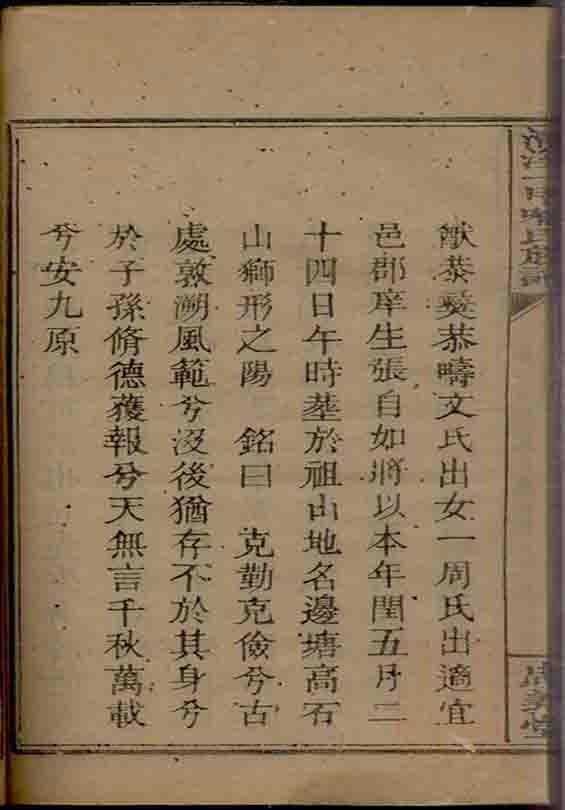 猷恭燮恭疇文氏出女一周氏出適宜
邑郡庠生張自如將以本年閏五月二
十四日午時塟於祖山地名邊塘高石
山獅形之陽 銘曰 克勤克儉兮古
處敦溯風範兮沒後猶存不於其身兮
於子孫脩德蒦報兮天無言千秋萬載
兮安九原